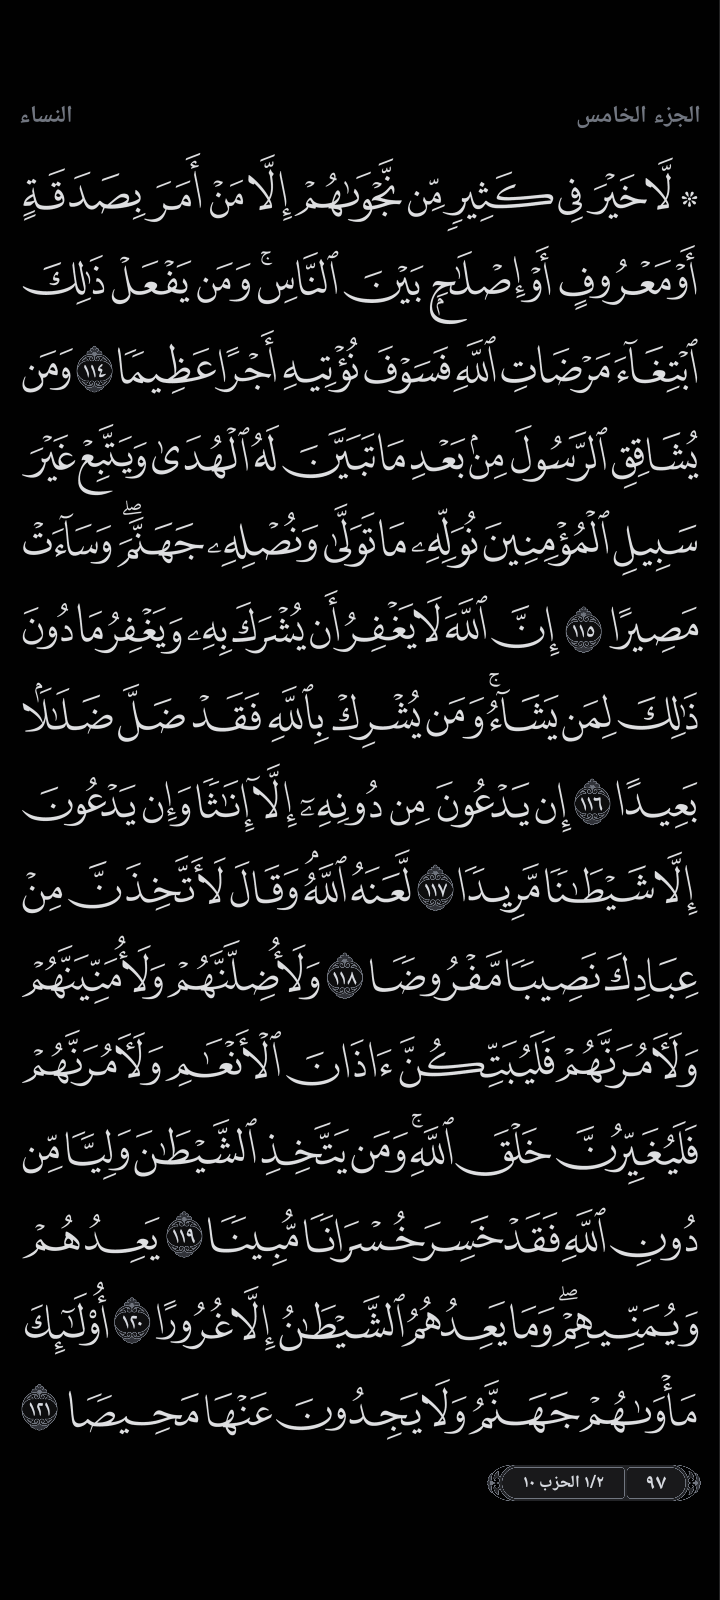 الجزء الخامس
النساء
۞ لَّا خَيْرَ فِي كَثِيرٖ مِّن نَّجْوَىٰهُمْ إِلَّا مَنْ أَمَرَ بِصَدَقَةٍ
أَوْ مَعْرُوفٍ أَوْ إِصْلَٰحِۭ بَيْنَ ٱلنَّاسِۚ وَمَن يَفْعَلْ ذَٰلِكَ
ٱبْتِغَآءَ مَرْضَاتِ ٱللَّهِ فَسَوْفَ نُؤْتِيهِ أَجْرًا عَظِيمٗا ١١٤ وَمَن
يُشَاقِقِ ٱلرَّسُولَ مِنۢ بَعْدِ مَا تَبَيَّنَ لَهُ ٱلْهُدَىٰ وَيَتَّبِعْ غَيْرَ
سَبِيلِ ٱلْمُؤْمِنِينَ نُوَلِّهِۦ مَا تَوَلَّىٰ وَنُصْلِهِۦ جَهَنَّمَۖ وَسَآءَتْ
مَصِيرًا ١١٥ إِنَّ ٱللَّهَ لَا يَغْفِرُ أَن يُشْرَكَ بِهِۦ وَيَغْفِرُ مَا دُونَ
ذَٰلِكَ لِمَن يَشَآءُۚ وَمَن يُشْرِكْ بِٱللَّهِ فَقَدْ ضَلَّ ضَلَٰلَۢا
بَعِيدًا ١١٦ إِن يَدْعُونَ مِن دُونِهِۦٓ إِلَّآ إِنَٰثٗا وَإِن يَدْعُونَ
إِلَّا شَيْطَٰنٗا مَّرِيدٗا ١١٧ لَّعَنَهُ ٱللَّهُۘ وَقَالَ لَأَتَّخِذَنَّ مِنْ
عِبَادِكَ نَصِيبٗا مَّفْرُوضٗا ١١٨ وَلَأُضِلَّنَّهُمْ وَلَأُمَنِّيَنَّهُمْ
وَلَأٓمُرَنَّهُمْ فَلَيُبَتِّكُنَّ ءَاذَانَ ٱلْأَنْعَٰمِ وَلَأٓمُرَنَّهُمْ
فَلَيُغَيِّرُنَّ خَلْقَ ٱللَّهِۚ وَمَن يَتَّخِذِ ٱلشَّيْطَٰنَ وَلِيّٗا مِّن
دُونِ ٱللَّهِ فَقَدْ خَسِرَ خُسْرَانٗا مُّبِينٗا ١١٩ يَعِدُهُمْ
وَيُمَنِّيهِمْۖ وَمَا يَعِدُهُمُ ٱلشَّيْطَٰنُ إِلَّا غُرُورًا ١٢٠ أُوْلَٰٓئِكَ
مَأْوَىٰهُمْ جَهَنَّمُ وَلَا يَجِدُونَ عَنْهَا مَحِيصٗا ١٢١
٩٧ ١/٢ الحزب ١٠